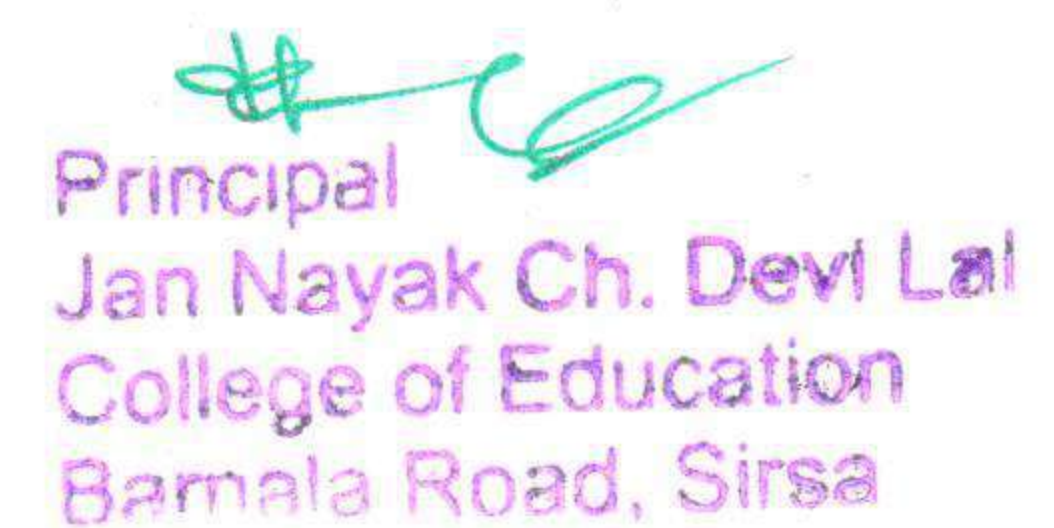 Principal
Jan Nayak Ch. Devi Lal
College of Education
Barnala Road, Sirsa